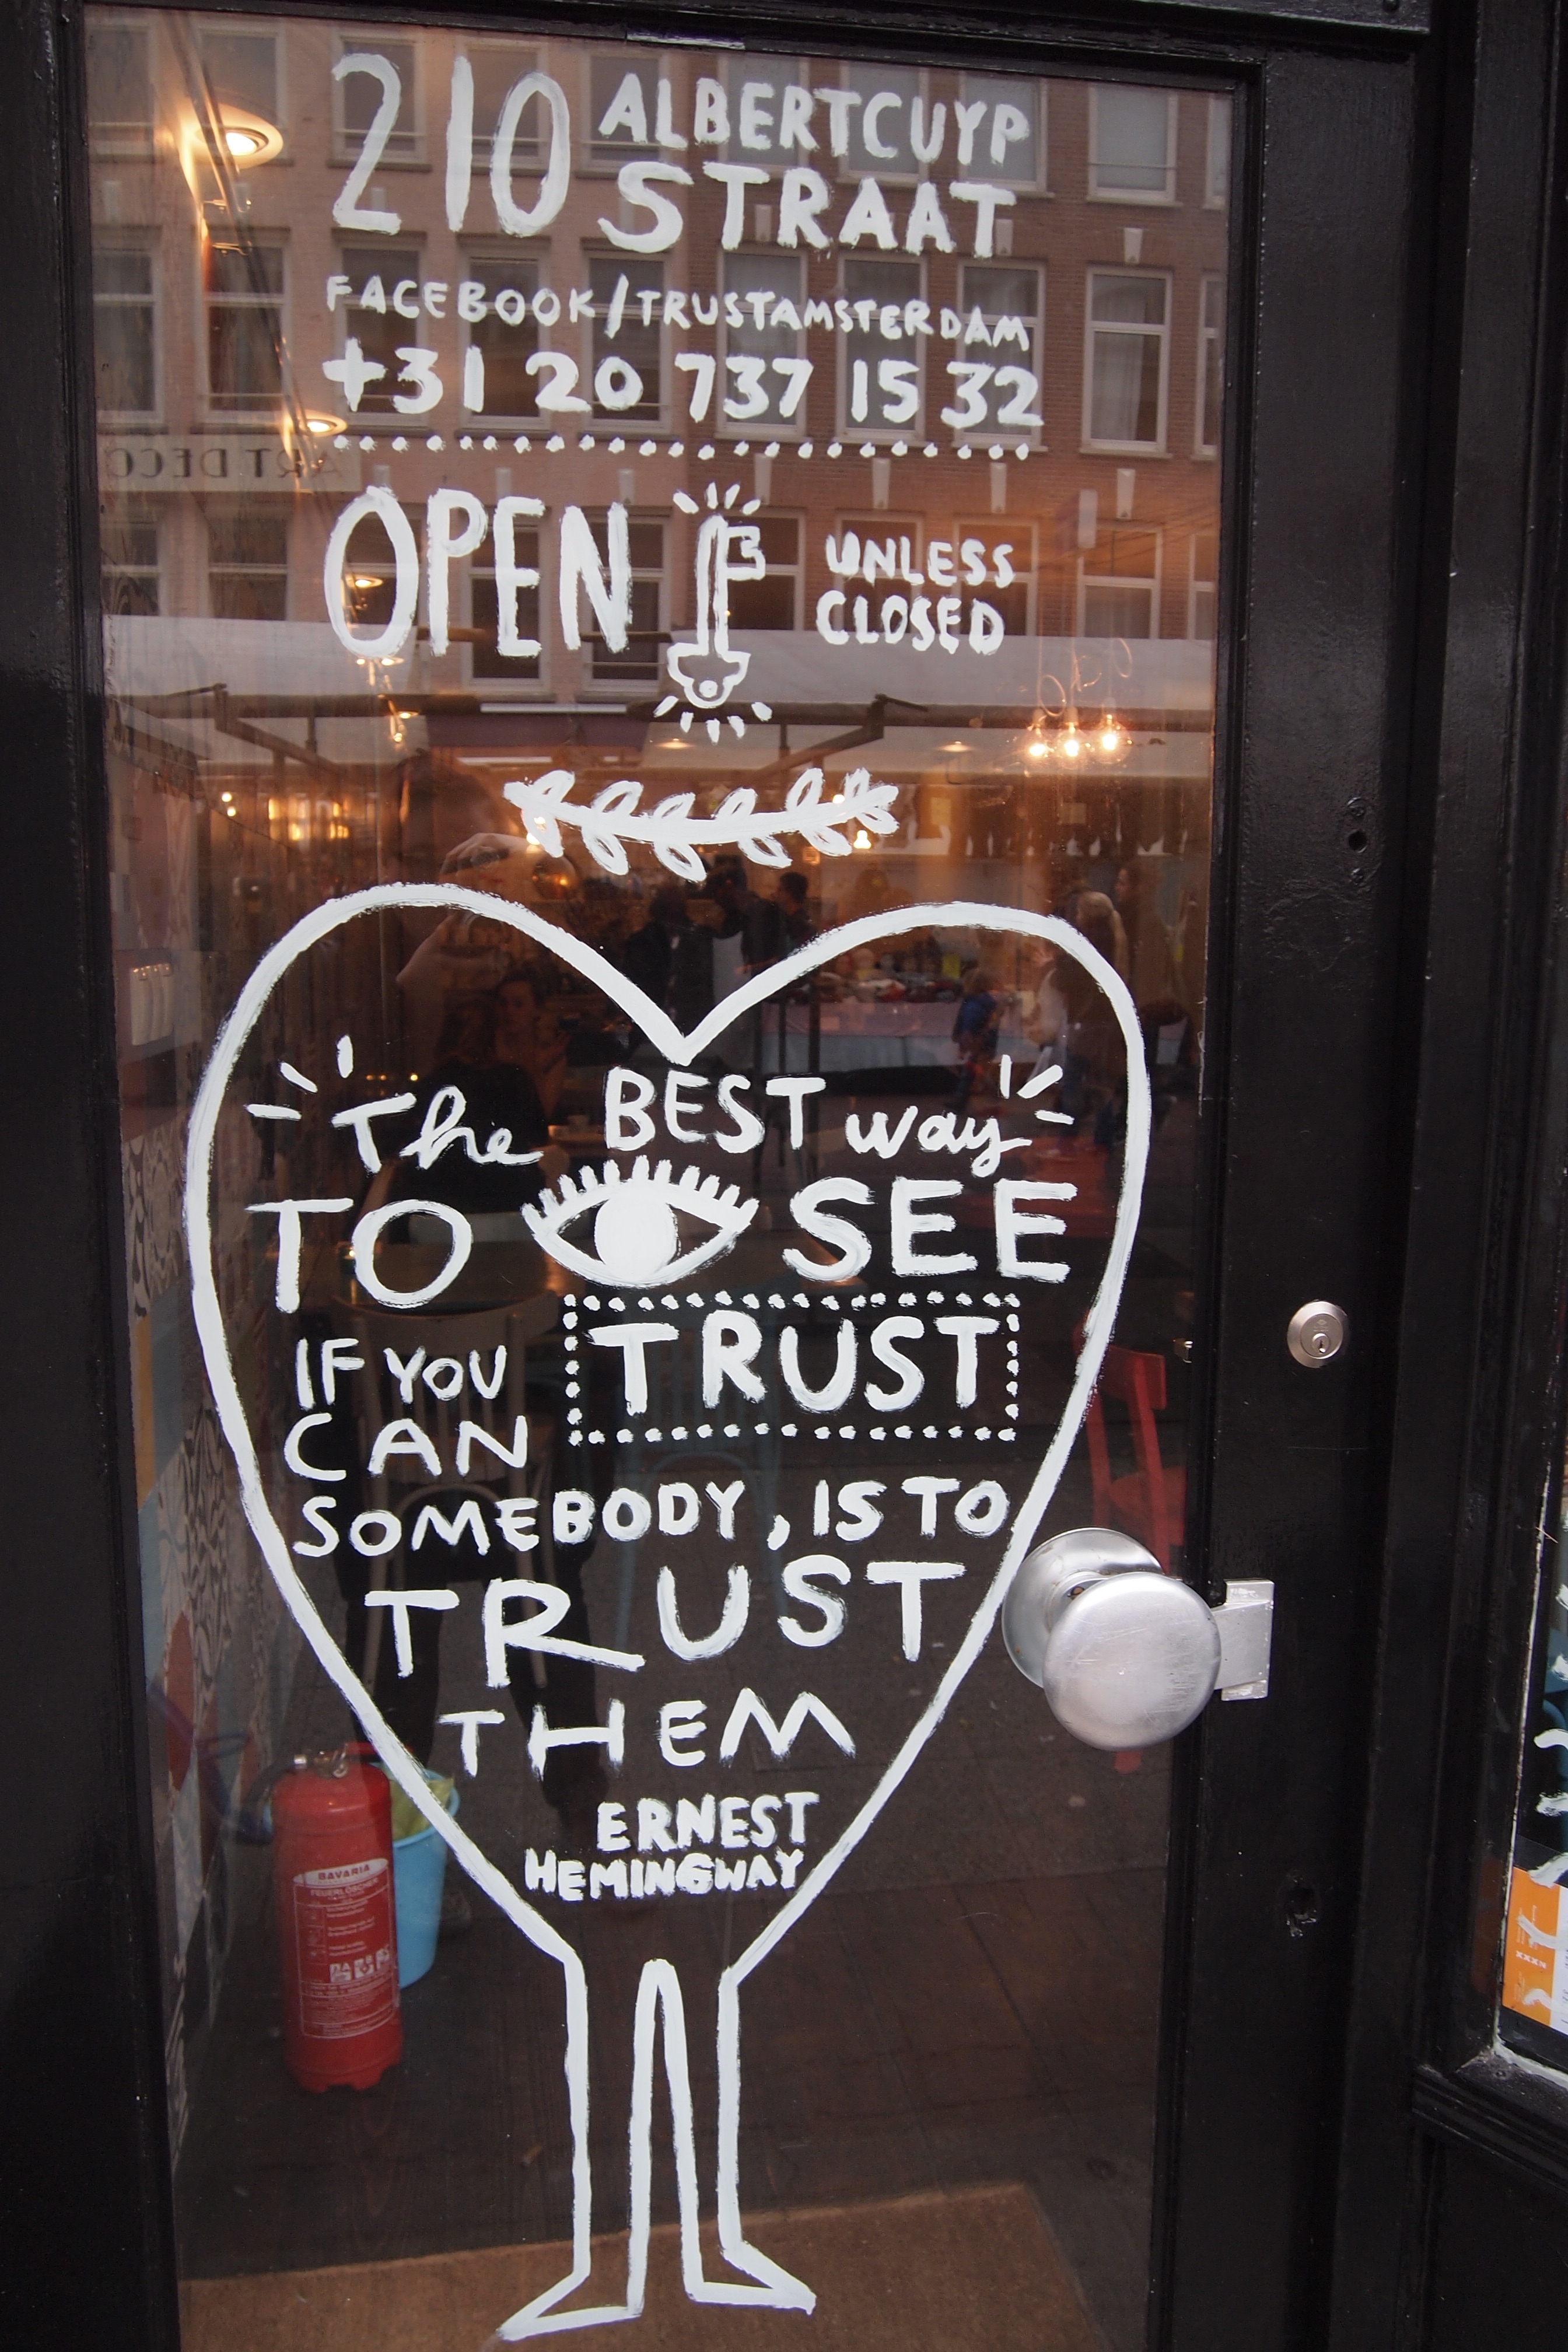 210 ALBERTCUYP
STRAAT
FACEBOOK/TRUSTAMSTERDAM
+31 20 737 15 32
OPEN UNLESS
CLOSED
The BEST way
TO SEE
IF YOU TRUST
CAN
SOMEBODY, IS TO
TRUST
THEM
ERNEST
HEMINGWAY
BAVARIA
FEUERLÖSCHER
ART DECO